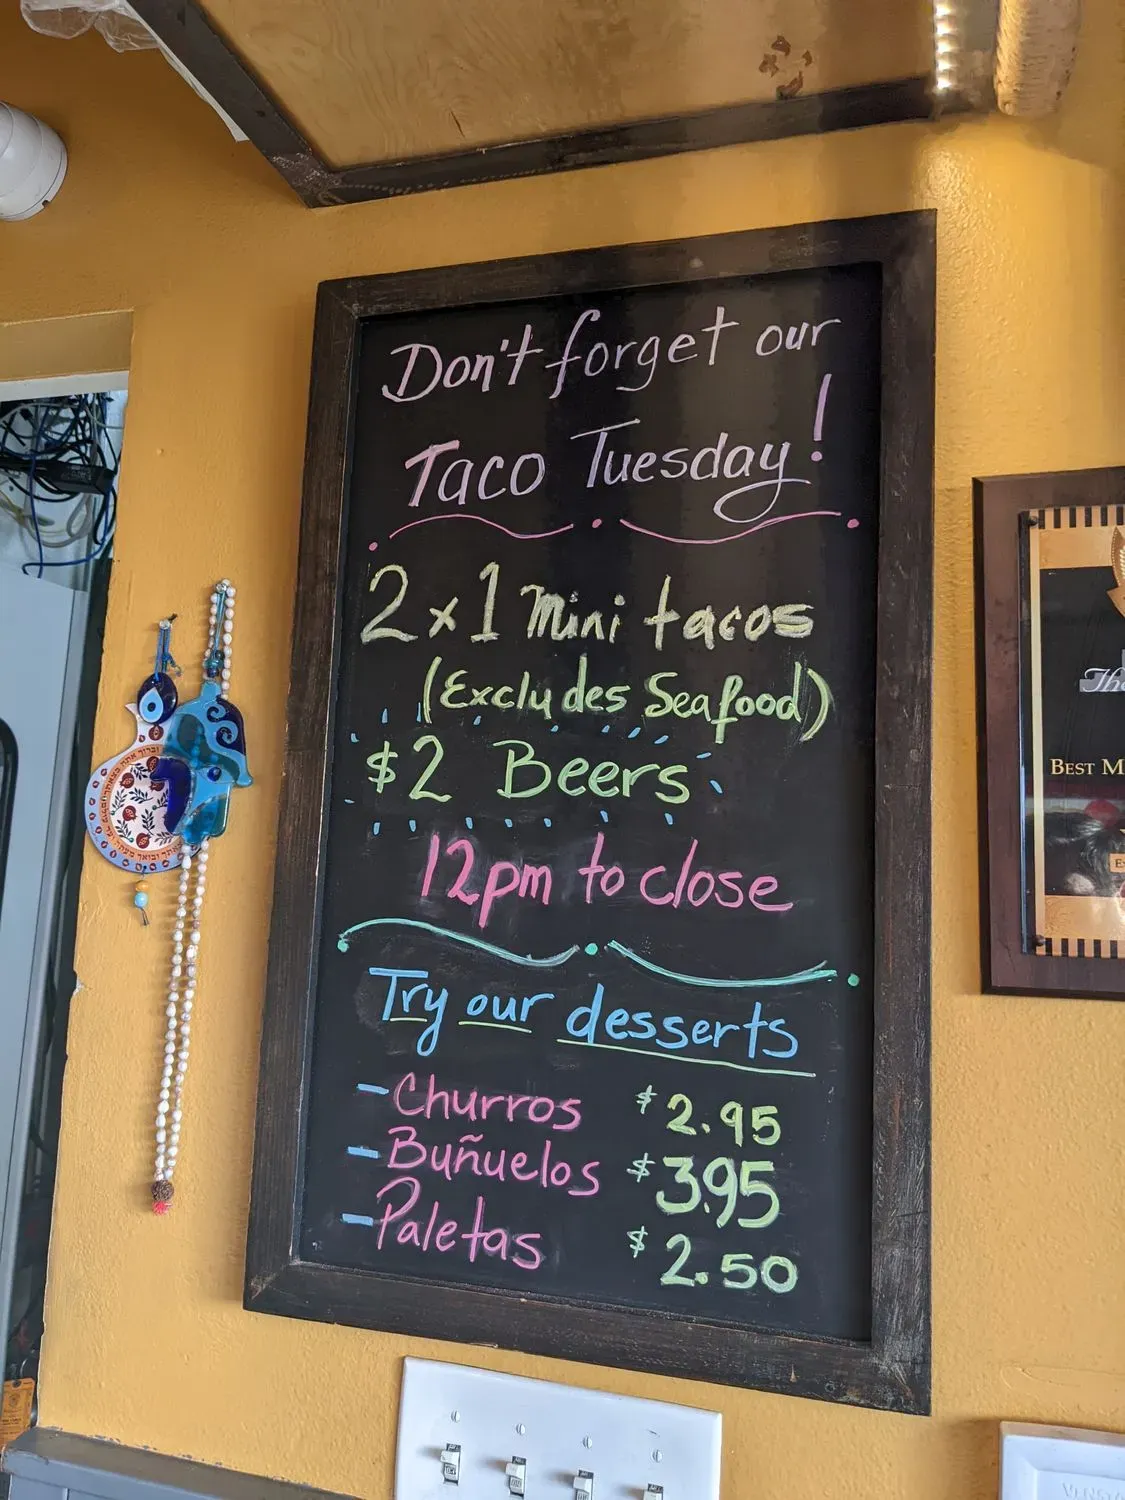 Don't forget our
Taco Tuesday!
2 x 1 mini tacos
(Excludes Seafood)
$2 Beers
12pm to close
Try our desserts
- Churros $2.95
- Buñuelos $3.95
- Paletas $2.50
The
BEST M